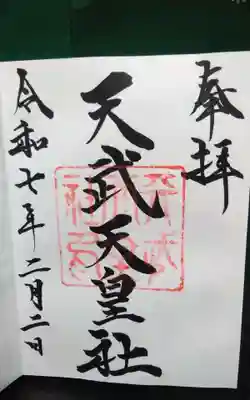 奉拝
天武天皇社
令和七年二月二日